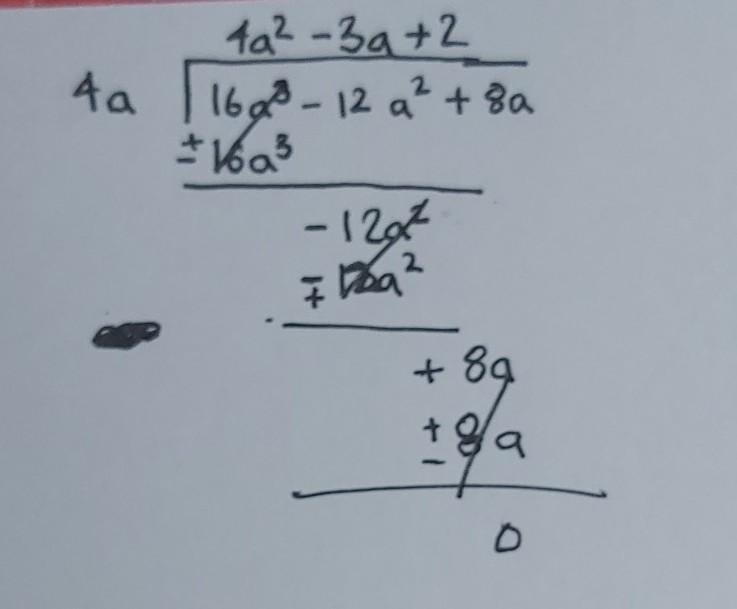 4a² -3a +2
4a 16a³ - 12a² + 8a
± 16a³
-12a²
∓ 12a²
+ 8a
± 8a
0